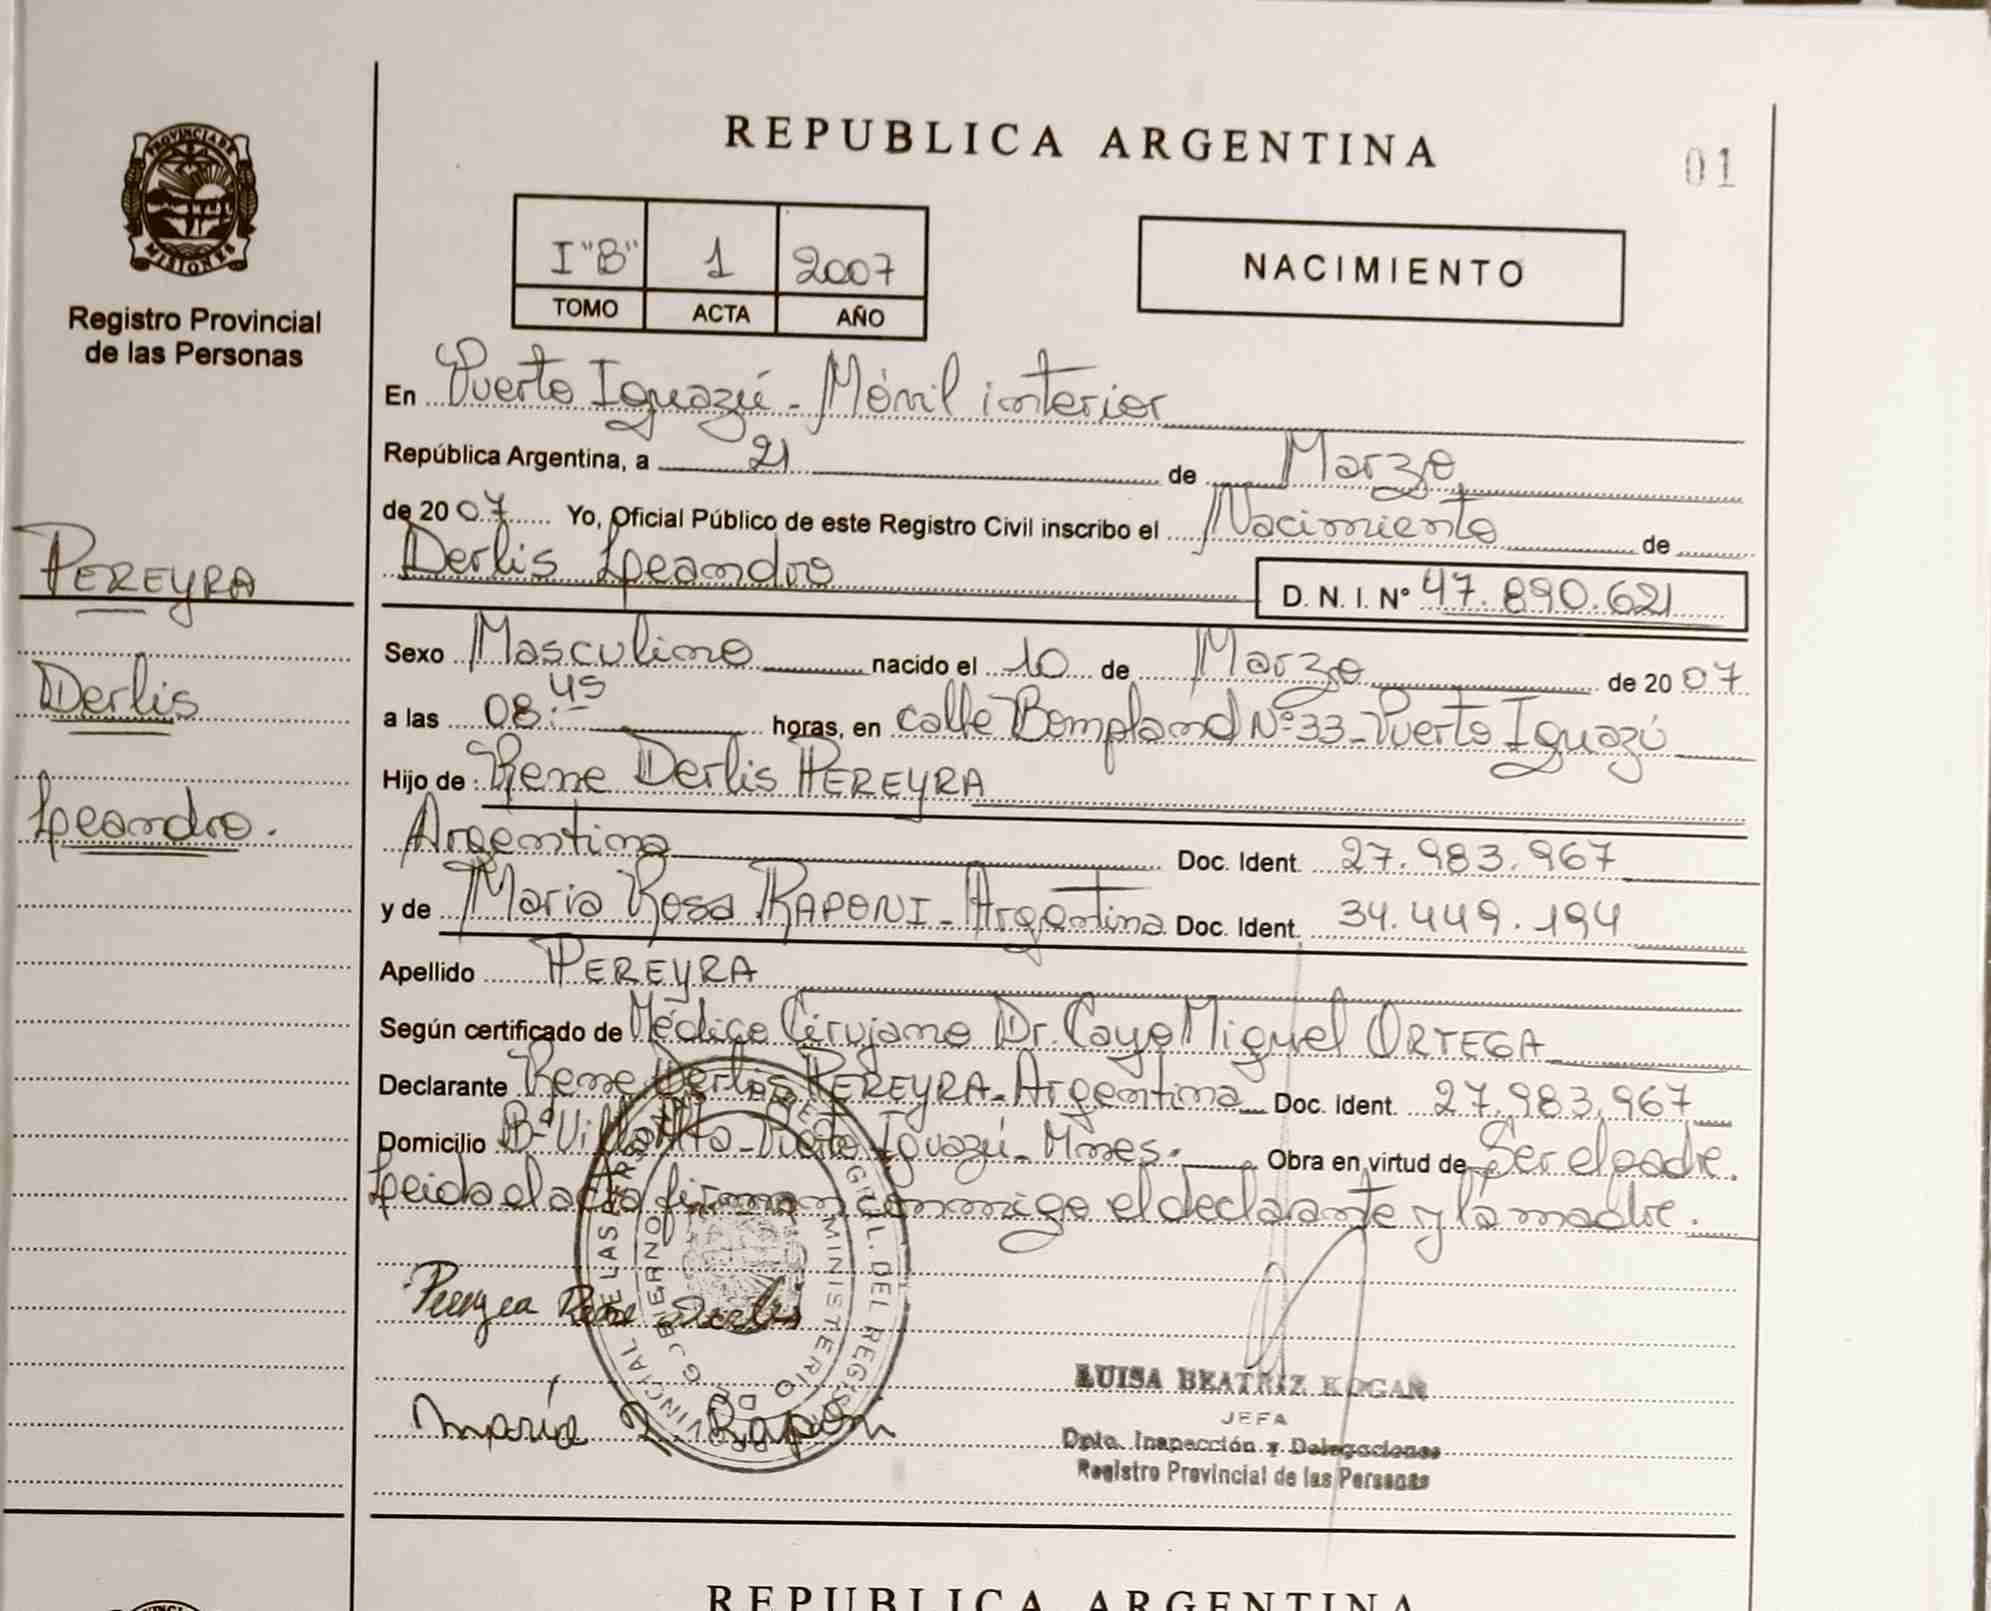 REPUBLICA ARGENTINA
01
PROVINCIA DE
MISIONES
Registro Provincial
de las Personas
I "B" 1 2007
TOMO ACTA AÑO
NACIMIENTO
En Puerto Iguazú - Móvil interior
República Argentina, a 21 de Marzo
de 2007 Yo, Oficial Público de este Registro Civil inscribo el Nacimiento de
Derlis Leandro D. N. I. Nº 47.890.621
PEREYRA
Derlis
Leandro.
Sexo Masculino nacido el 10 de Marzo de 2007
a las 08:45 horas, en calle Bompland Nº 33 - Puerto Iguazú
Hijo de Rene Derlis PEREYRA
Argentina Doc. Ident. 27.983.967
y de Maria Rosa RAPONI - Argentina Doc. Ident. 34.449.194
Apellido PEREYRA
Según certificado de Médico Cirujano Dr. Cayo Miguel ORTEGA
Declarante Rene Derlis PEREYRA - Argentina Doc. Ident. 27.983.967
Domicilio Bº Villa Alta - Puerto Iguazú - Mnes. Obra en virtud de Ser el padre.
Leida el acta firman conmigo el declarante y la madre.
Pereyra Rene Derlis
María R. Raponi
LUISA BEATRIZ KOGAN
JEFA
Dpto. Inspección y Delegaciones
Registro Provincial de las Personas
REPUBLICA ARGENTINA